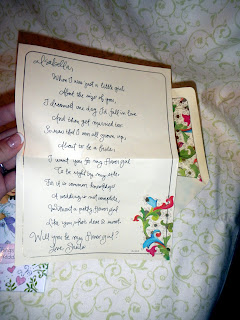 Isabella,
When I was just a little girl
About the size of you,
I dreamed one day I'd fall in love
And then get married too
So now that I am all grown up,
About to be a bride,
I want you for my flower girl
To be right by my side.
For it is common knowledge
A wedding is not complete,
Without a pretty flower girl
Like you who's dear & sweet.
Will you be my flower girl?
Love,